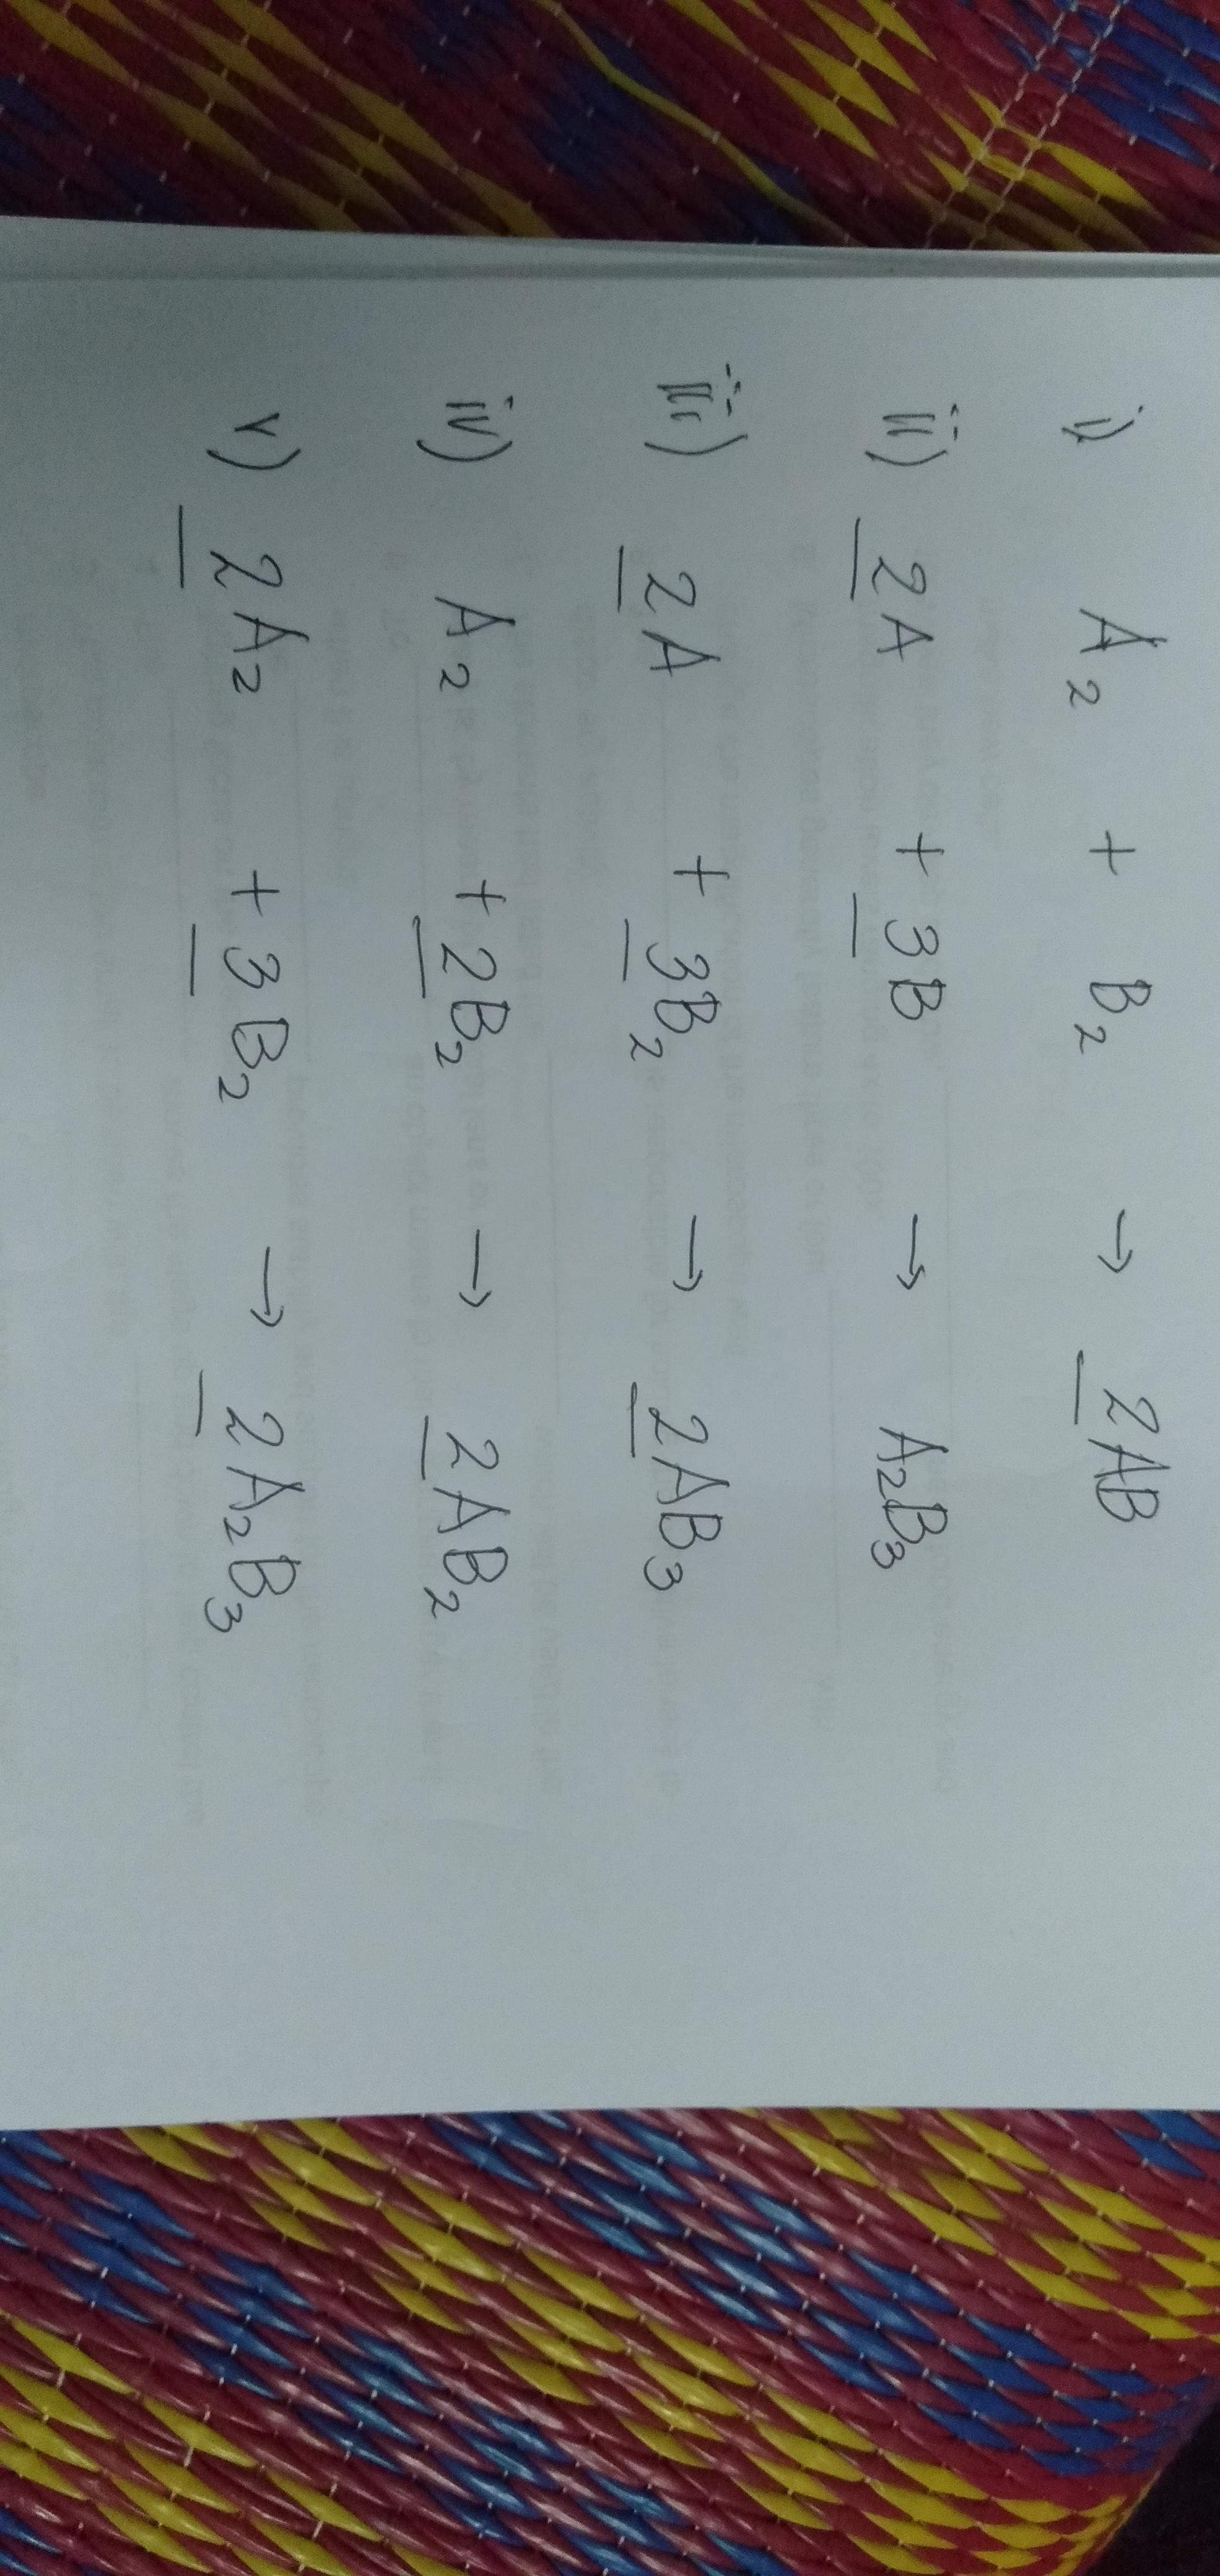 i) A₂ + B₂ → 2AB
ii) 2A + 3B → A₂B₃
iii) 2A + 3B₂ → 2AB₃
iv) A₂ + 2B₂ → 2AB₂
v) 2A₂ + 3B₂ → 2A₂B₃